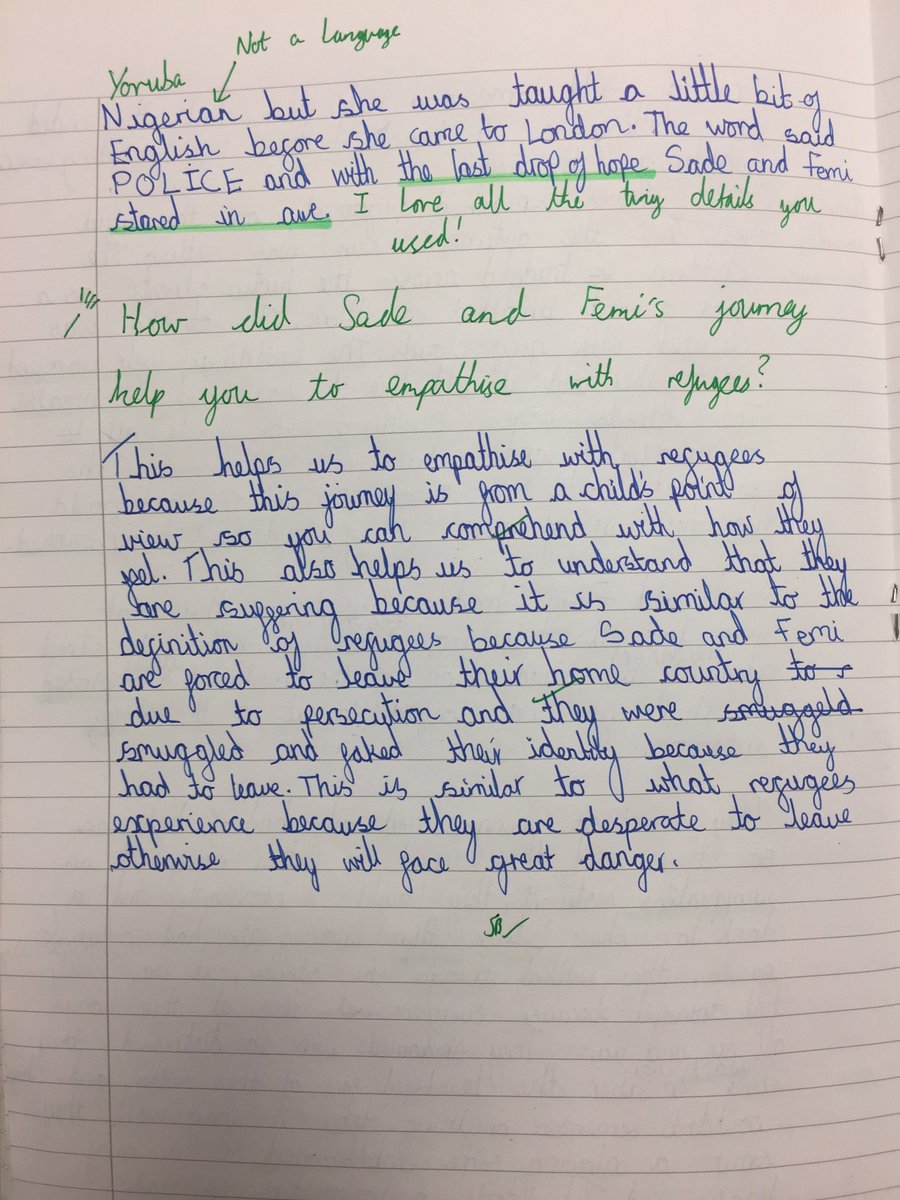 Not a language
Yoruba
Nigerian but she was taught a little bit of
English before she came to London. The word said
POLICE and with the last drop of hope Sade and Femi
stared in awe. I love all the tiny details you
used!
How did Sade and Femi's journey
help you to empathise with refugees?
This helps us to empathise with refugees
because this journey is from a child's point of
view so you can comprehend with how they
feel. This also helps us to understand that they
are suffering because it is similar to the
definition of refugees because Sade and Femi
are forced to leave their home country to
due to persecution and they were smuggeld
smuggled and faked their identity because they
had to leave. This is similar to what refugees
experience because they are desperate to leave
otherwise they will face great danger.